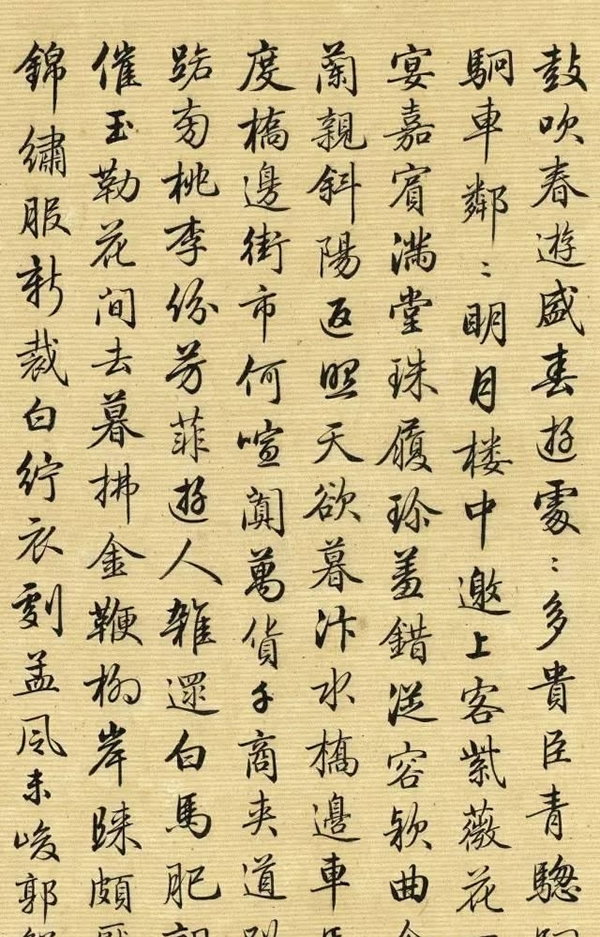 鼓吹春遊盛春遊處〻多貴臣青驄
駉車鄰〻明月楼中邀上客紫薇花
宴嘉賓滿堂珠履珍羞錯從容欵曲
蘭親斜陽返照天欲暮汴水橋邊車
度橋邊街市何喧闐萬貨千商夾道
路南桃李份芳菲遊人雜還白馬肥
催玉勒花间去暮拂金鞭柳岸歸頗
錦繡服新裁白紵衣劇孟風未峻郭